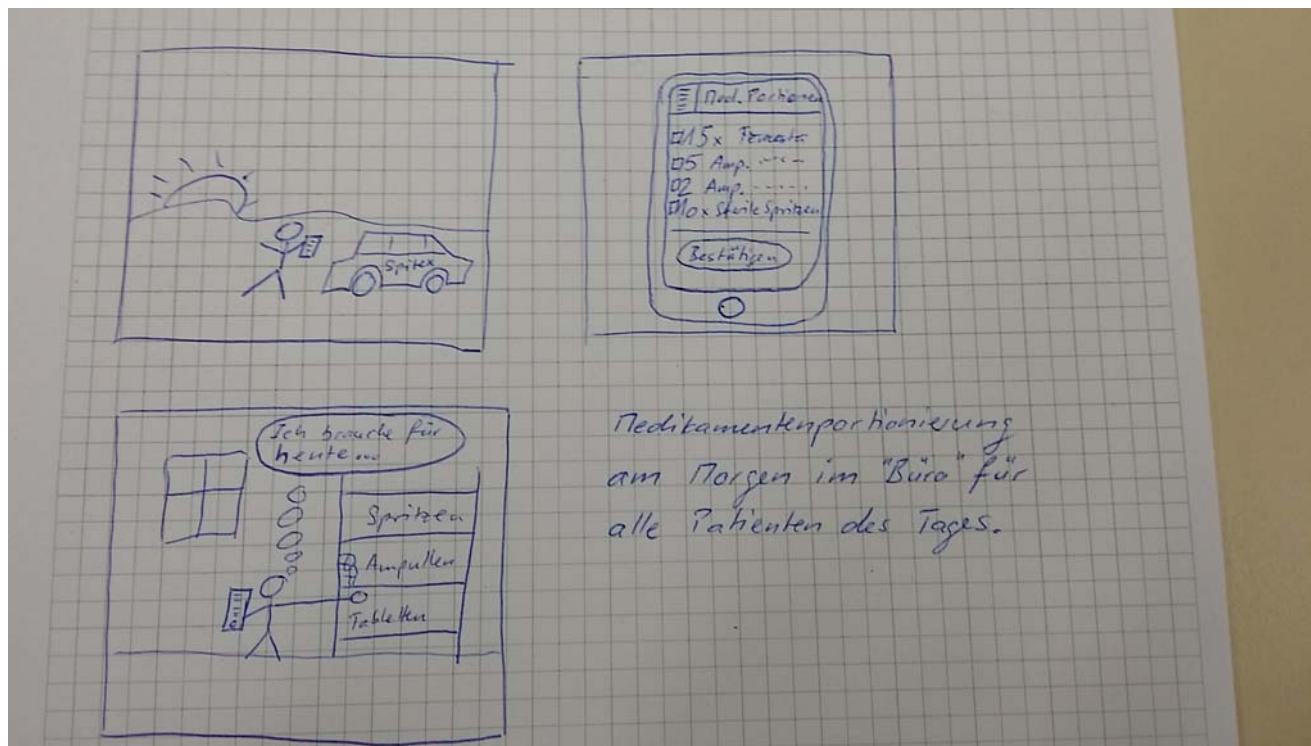 Spitex
Med. Portionen
15x Temesta
5 Amp.
2 Amp.
10x Sterile Spritzen
Bestätigen
Ich brauche für
heute...
Spritzen
Ampullen
Tabletten
Medikamentenportionierung
am Morgen im "Büro" für
alle Patienten des Tages.